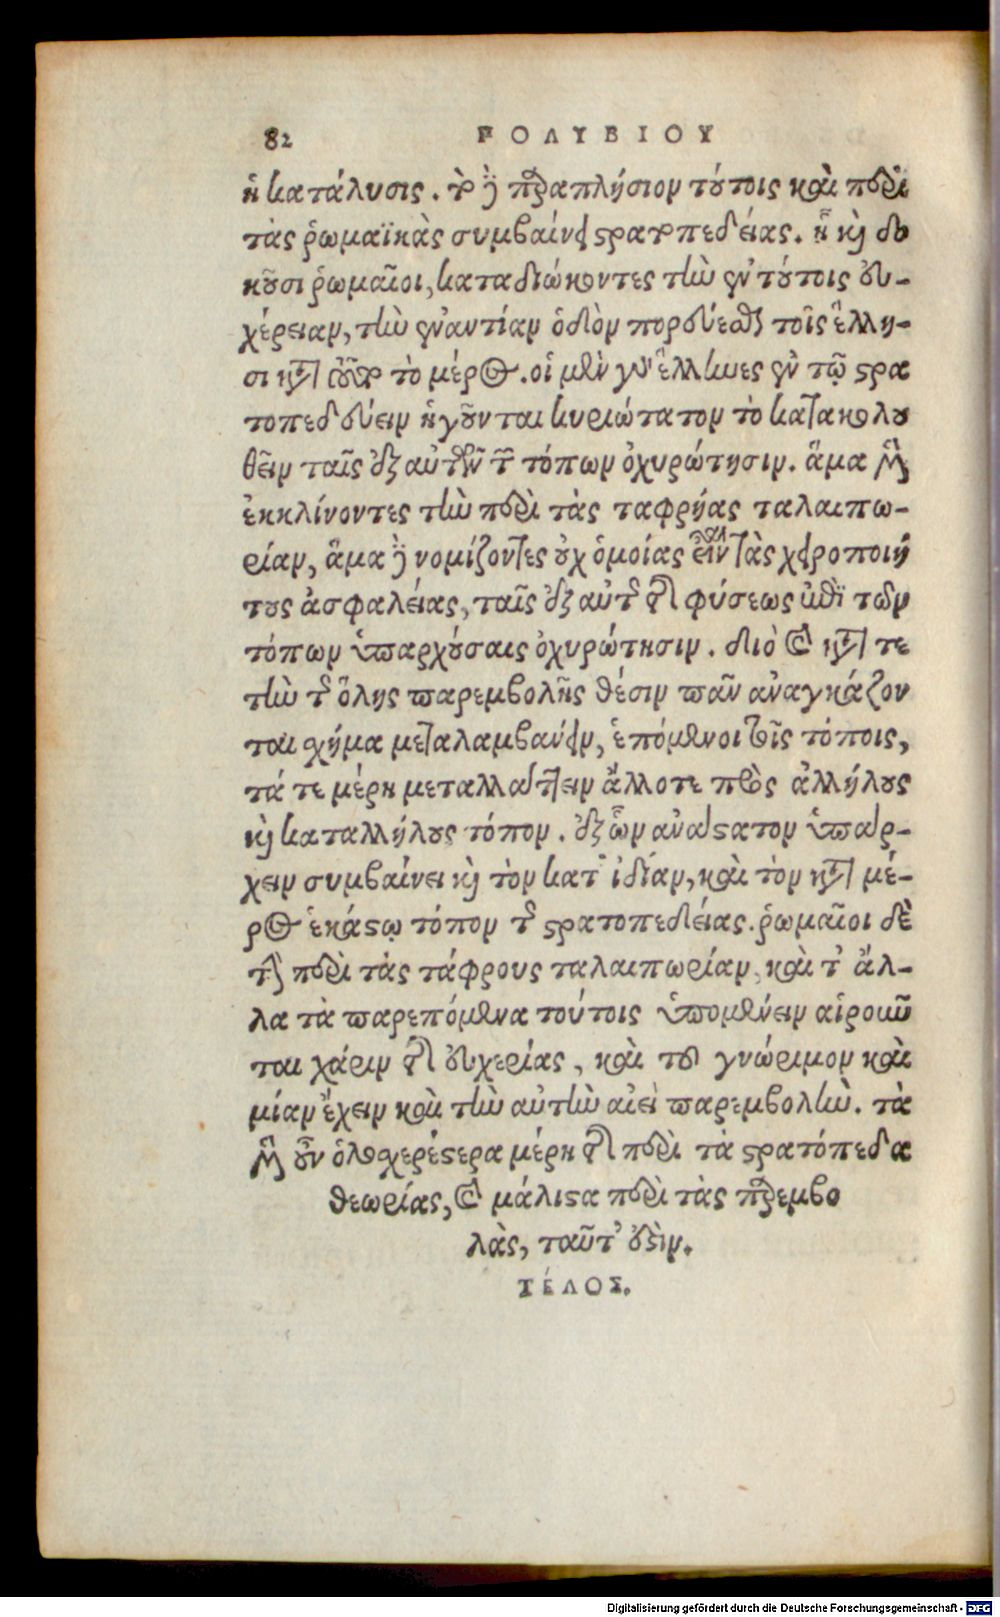 82 ΠΟΛΥΒΙΟΥ
ἡ κατάλυσις. τὸ δὲ παραπλήσιον τούτοις καὶ περὶ
τὰς ῥωμαϊκὰς συμβαίνει στρατοπεδείας. ᾗ καὶ δο
κοῦσι ῥωμαῖοι, καταδιώκοντες τὴν ἐν τούτοις εὐ-
χέρειαν, τὴν ἐναντίαν ὁδὸν πορεύεσθαι τοῖς ἕλλη-
σι κατὰ τοῦτο τὸ μέρος. οἱ μὲν γὰρ ἕλληνες ἐν τῷ στρα
τοπεδεύειν ἡγοῦνται κυριώτατον τὸ κατακολου
θεῖν ταῖς ἐξ αὐτῶν τῶν τόπων ὀχυρώτησιν. ἅμα μὲν
ἐκκλίνοντες τὴν περὶ τὰς ταφρήας ταλαιπω-
ρίαν, ἅμα δὲ νομίζοντες οὐχ ὁμοίας εἶναι τὰς χειροποιή
τους ἀσφαλείας, ταῖς ἐξ αὐτῆς τῆς φύσεως ἐπὶ τῶν
τόπων ὑπαρχούσαις ὀχυρώτησιν. διὸ καὶ κατά τε
τὴν τῆς ὅλης παρεμβολῆς θέσιν πᾶν ἀναγκάζον
ται σχῆμα μεταλαμβάνειν, ἑπόμενοι τοῖς τόποις,
τά τε μέρη μεταλλάττειν ἄλλοτε πρὸς ἀλλήλους
καὶ καταλλήλους τόπον. ἐξ ὧν ἀνάστατον ὑπάρ-
χειν συμβαίνει καὶ τὸν κατ' ἰδίαν, καὶ τὸν κατὰ μέ-
ρος ἑκάστῳ τόπον τῆς στρατοπεδιείας. ῥωμαῖοι δὲ
τὴν περὶ τὰς τάφρους ταλαιπωρίαν, καὶ τ' ἄλ-
λα τὰ παρεπόμενα τούτοις ὑπομένειν αἱροῦν
ται χάριν τῆς εὐχερίας, καὶ τοῦ γνώριμον καὶ
μίαν ἔχειν καὶ τὴν αὐτὴν αἰεὶ παρεμβολήν. τὰ
μὲν οὖν ὁλοσχερέστερα μέρη τῆς περὶ τὰ στρατόπεδα
θεωρίας, καὶ μάλιστα περὶ τὰς παρεμβο
λὰς, ταῦτ' ἐστὶν.
ΤΈΛΟΣ.
Digitalisierung gefördert durch die Deutsche Forschungsgemeinschaft - DFG